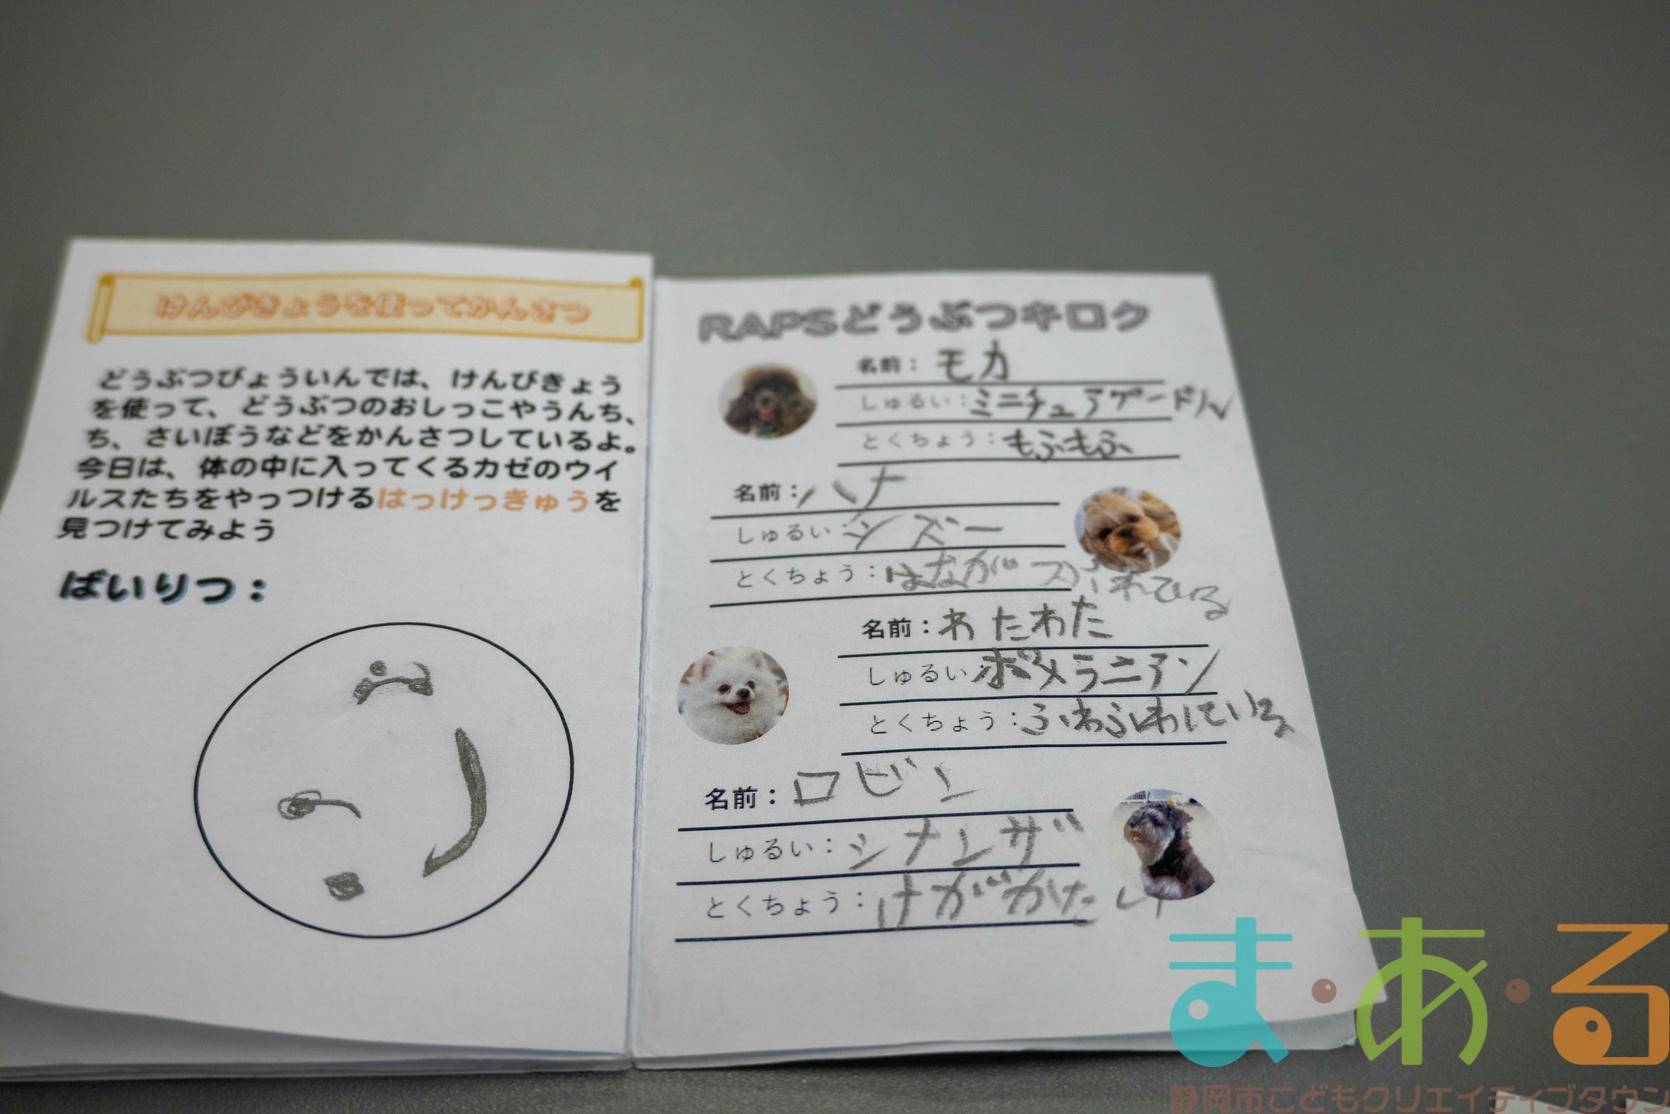 けんびきょうを使ってかんさつ
どうぶつびょういんでは、けんびきょう
を使って、どうぶつのおしっこやうんち、
ち、さいぼうなどをかんさつしているよ。
今日は、体の中に入ってくるカゼのウイ
ルスたちをやっつけるはっけっきゅうを
見つけてみよう
ばいりつ：
RAPSどうぶつキロク
名前：モカ
しゅるい：ミニチュアプードル
とくちょう：もふもふ
名前：ハナ
しゅるい：シズー
とくちょう：はながつぶれている
名前：わたわた
しゅるい：ポメラニアン
とくちょう：ふわふわしている
名前：ロビン
しゅるい：シナレザ
とくちょう：けがかたい
ま・あ・る
静岡市こどもクリエイティブタウン